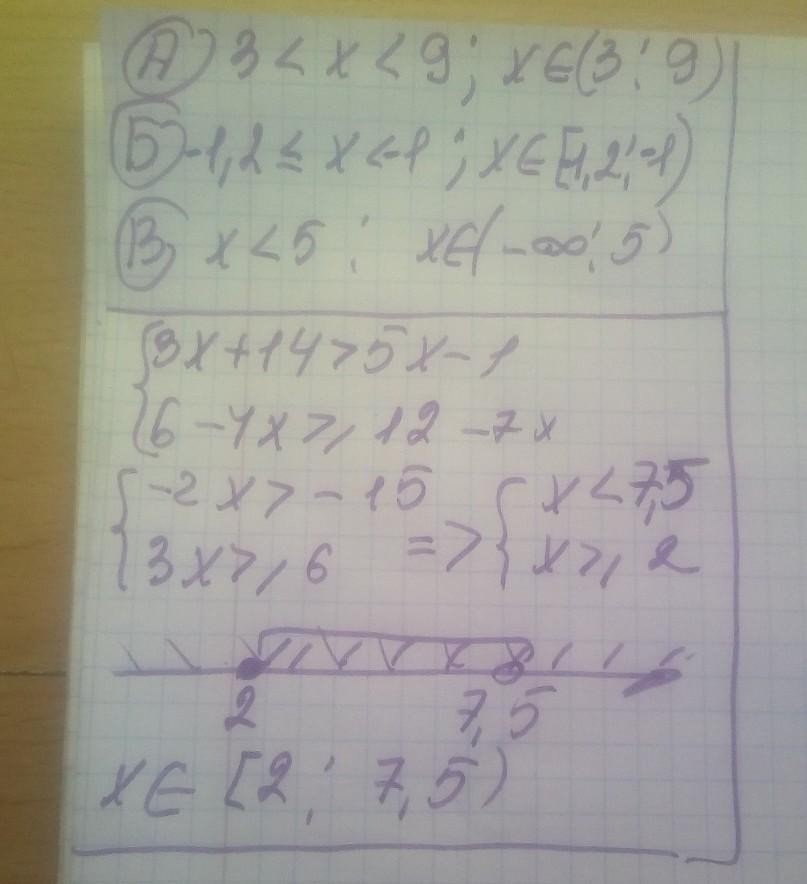 А) 3 < x < 9; x∈(3; 9)
Б) -1,2 ≤ x < -1; x∈[-1,2; -1)
В) x < 5; x∈(-∞; 5)
{3x+14 > 5x-1
{6-4x ≥ 12-7x
{-2x > -15
{3x ≥ 6 => {x < 7,5
{x ≥ 2
2 7,5
x∈[2; 7,5)